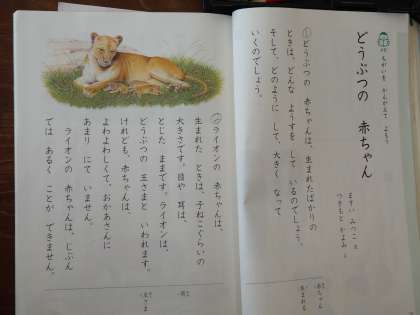 ちがいを かんがえて よもう。
どうぶつの 赤ちゃん
ますい みつこ 文
①どうぶつの 赤ちゃんは、生まれたばかりの
ときは、どんな ようすを して いるのでしょう。
そして、どのように して、大きく なって
いくのでしょう。
赤ちゃん
生まれる
②ライオンの 赤ちゃんは、
生まれた ときは、子ねこぐらいの
大きさです。目や 耳は、
とじた ままです。ライオンは、
どうぶつの 王さまと いわれます。
けれども、赤ちゃんは、
よわよわしくて、おかあさんに
あまり にて いません。
ライオンの 赤ちゃんは、じぶん
では あるく ことが できません。
王さま